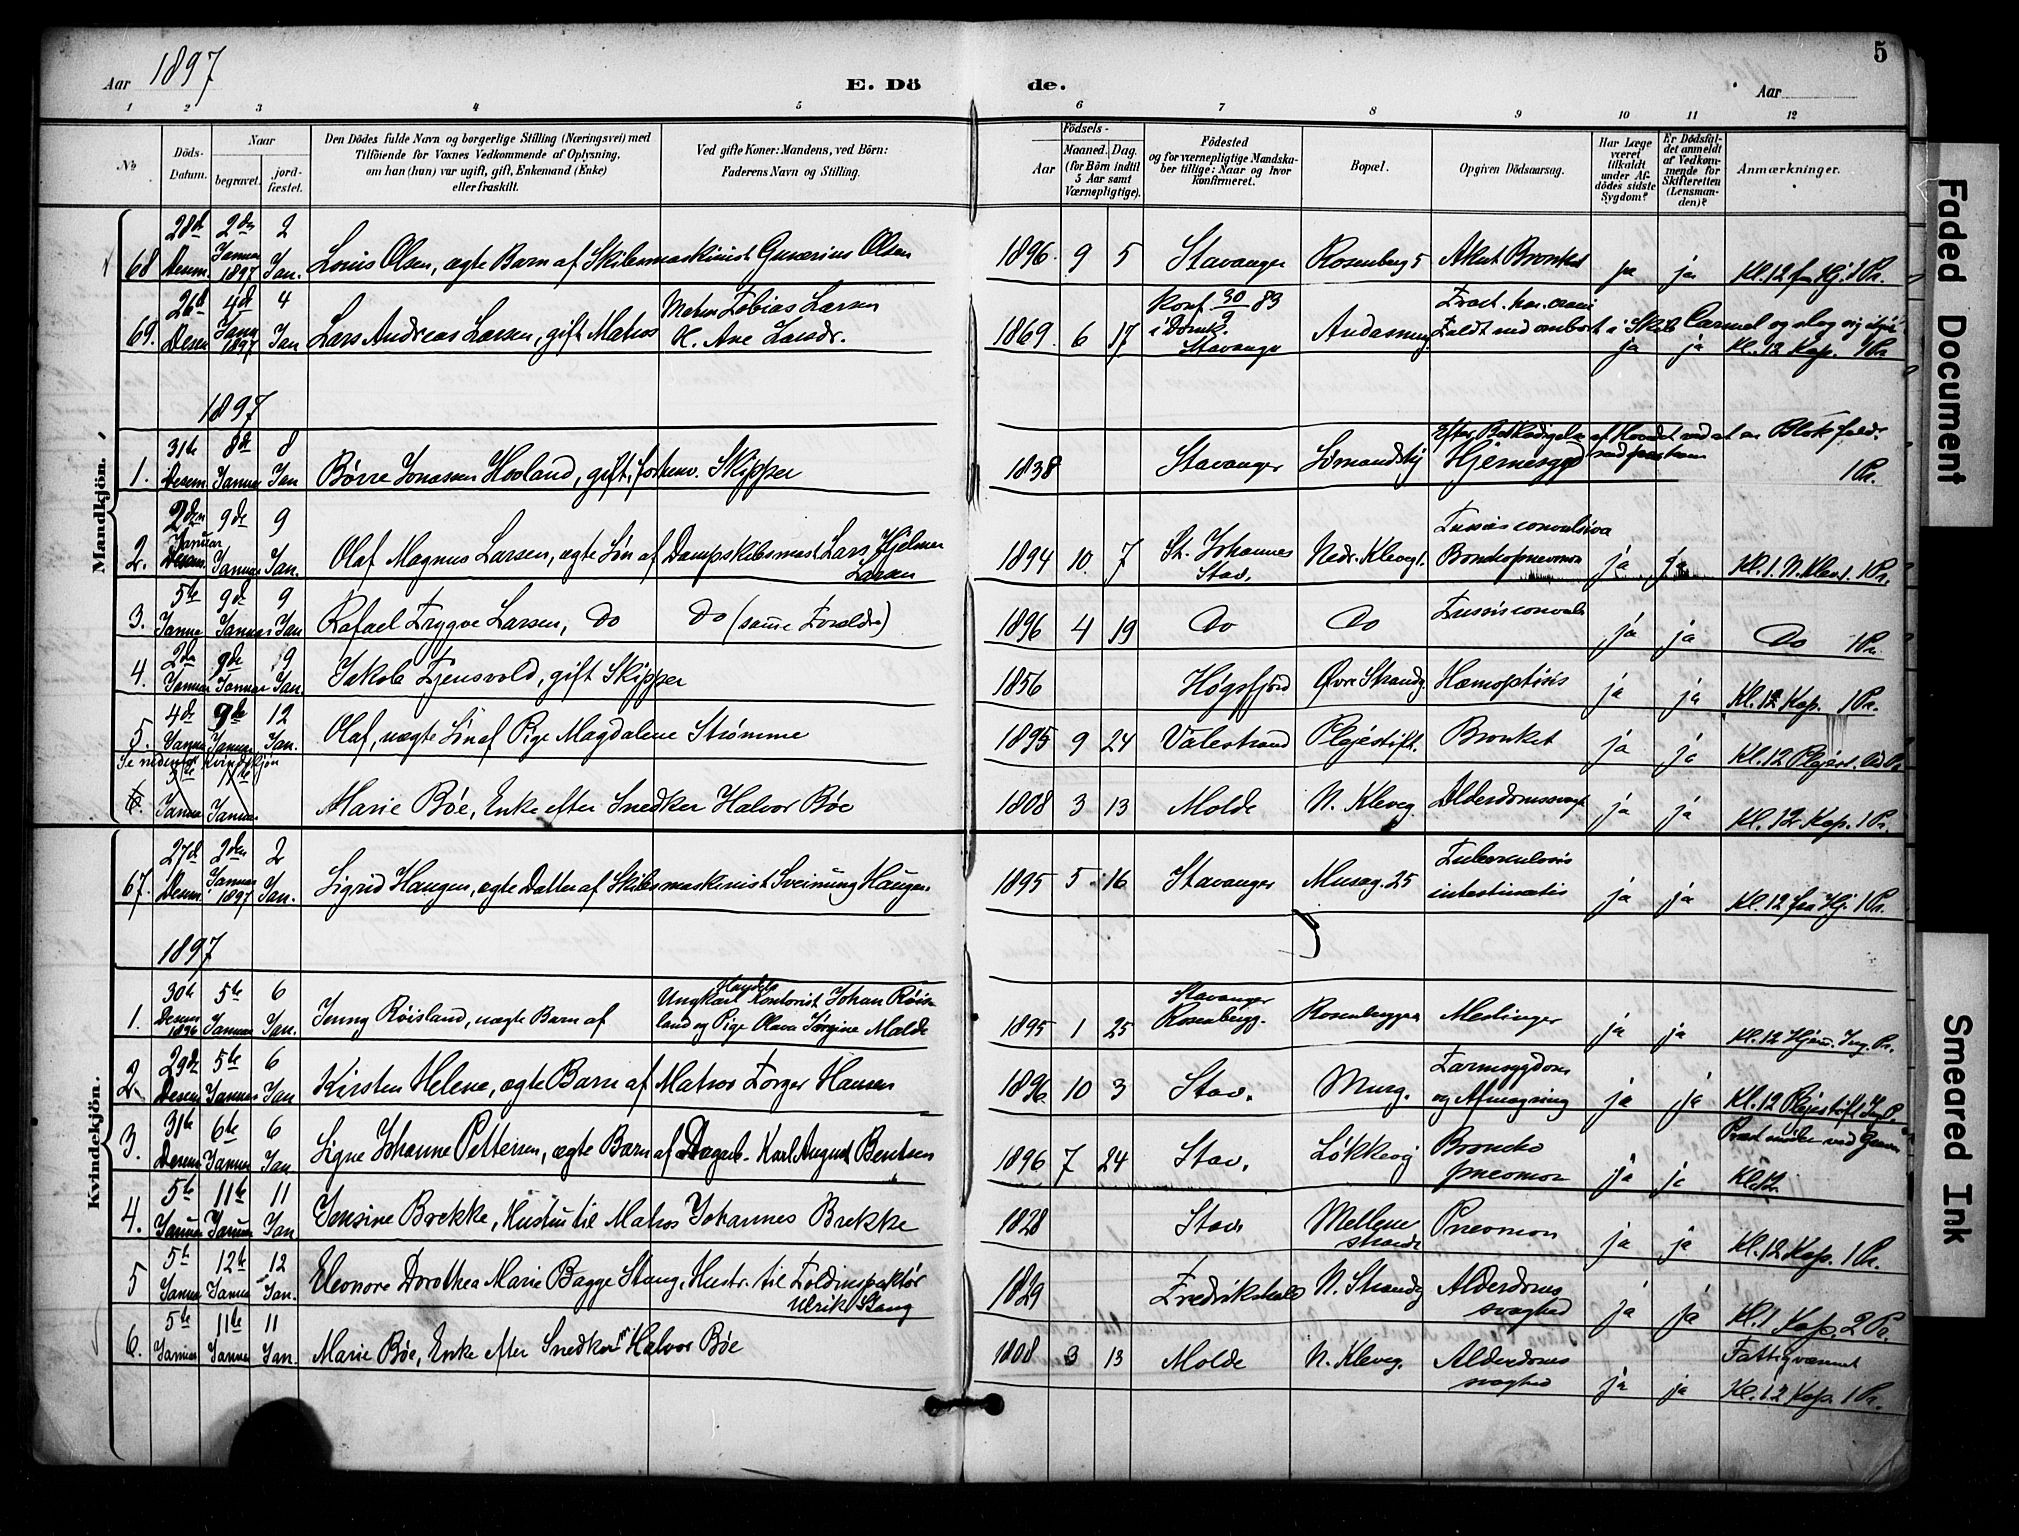 5
Aar 1897 E. Döde. Aar
1 2 3 4 5 6 7 8 9 10 11 12
No.
Döds-Datum.
Naar
begravet.
jord-fæstet.
Den Dödes fulde Navn og borgerlige Stilling (Næringsvei) med
Tilföiende for Voxnes Vedkommende af Oplysning,
om han (hun) var ugift, gift, Enkemand (Enke)
eller fraskilt.
Ved gifte Koner: Mandens, ved Börn:
Faderens Navn og Stilling.
Födsels-
Aar
Maaned. Dag.
(for Börn indtil
5 Aar samt
Værnepligtige).
Födested
og for værnepligtige Mandska-
ber tillige: Naar og hvor
konfirmeret.
Bopæl.
Opgiven Dödsaarsag.
Har Læge
været
tilkaldt
under Af-
dödes sidste
Sygdom?
Er Dödsfal-
det anmeldt
af Vedkom-
mende for
Skifteretten
(Lensman-
den)?
Anmærkninger.
Mandkjön.
68 28d Desem. 2den Januar 1897 2 Jan. Louis Olsen, ægte Barn af Skibsmaskinist Gunerius Olsen 1896 9 5 Stavanger Rosenberg 5 Akut Bronket ja ja Kl. 12 fra Hj. 1 Pr.
69. 26d Desem 4d Janu 1897 4 Jan Lars Andreas Larsen, gift Matros Tobias Larsen Ane Larsdr. 1869. 6 17 Konf 30/9 83 i Domk. Stavanger Faldt ned ombord i Skib Carmel og slog sig ja ja Kl. 12 Kap. 1 Pr.
1897
1. 31te Desem. 8de Januar 8 Jan Børre Jonassen Hovland, gift, forhenv. Skipper 1838 Stavanger Efter Beskadigelse af Hovedet ved at en Blok faldt ned Hjernesygd 1 Pr.
2. 2den Januar Desem. 9de Januar 9 Jan. Olaf Magnus Larsen, ægte Søn af Dampskibsmast Lars Hjelmer Larsen 1894 10. 7 St. Johannes Stav. Nedr. Klevgt. Tussis convulsiva Bronkopneumon ja ja Kl. 1. N. Klevg. 1 Pr.
3. 5te Janua 9d Januar 9 Jan Rafael Trygve Larsen, Do Do (samme Forældre) 1896 4 19 Do Do Tussis convuls ja ja Do 1 Pr.
4. 2den Januar 9de Januar 9 Jan. Jakob Tjensvold, gift Skipper 1856 Høgsfjord Øvr Strandg. Hæmoptisis ja ja Kl. 12 Kap. 1 Pr.
5. 4de Janua 9de Januar 12 Jan. Olaf, uægte Søn af Pige Magdalene Strømme 1895 9 24 Valestrand Plejestift. Bronket ja ja Kl. 12 Plejest.
Se nedenfor Kvindekjøn
6. 5te Januar 11te Januar Marie Bøe, Enke efter Snedker Halvor Bøe 1808 3 13 Molde N. Kleveg. Alderdomssvagh ja ja Kl. 12 Kap. 1 Pr.
Kvindekjön.
67. 27d Desem. 2den Januar 1897 2 Jan. Sigrid Haugen, ægte Datter af Skibsmaskinist Sveinung Haugen 1895 5 16 Stavanger Musæg. 25 Tuberculosis intestinalis ja ja Kl. 12 fra Hj. 1 Pr.
1897
1. 30te Desem 1896 5te Januar 6 Jan. Jenny Røisland, uægte Barn af Ungkarl Handels Kontorist Johan Røis-land og Pige Olava Jørgine Malde 1895 1 25 Stavanger Rosenbergg. Rosenberggt Meslinger ja ja Kl. 12 Hjem. Ing. Pr.
2. 29de Desem 5te Januar 6 Jan Kirsten Helene, ægte Barn af Matros Torger Hansen 1896 10 3 Stav. Murg. Tarmsygdom og Afmagring ja ja Kl. 12 Plejestift Ing P.
3. 31te Desem 6te Januar 6 Jan. Signe Johanne Pettersen, ægte Barn af Dagarb. Karl August Bentsen 1896 7 24 Stav. Løkkevg Broncho pneomon ja ja Præst møder ved Graven Kl. 12.
4. 5te Januar 11te Januar 11 Jan Jensine Brekke, Hustru til Matros Johannes Brekke 1828 Stav. Mellem strande Pneomon ja ja Kl. 12 Kap. 1 Pr.
5 5te Januar 12te Januar 12 Jan. Eleonore Dorothea Marie Bagge Stang, Hustr. til Toldinspektør Ulrik Stang 1829 Fredrikshald N. Strandg Alderdoms svaghed ja ja Kl. 1 Kap. 2 Pr.
6. 5te Januar 11te Januar 11 Jan. Marie Bøe, Enke efter Snedker Halvor Bøe 1808 3 13 Molde N. Kleveg. Alderdoms svaghed ja ja Fattigvæsenet Kl. 12 Kap. 1 Pr.
Faded Document
Smeared Ink